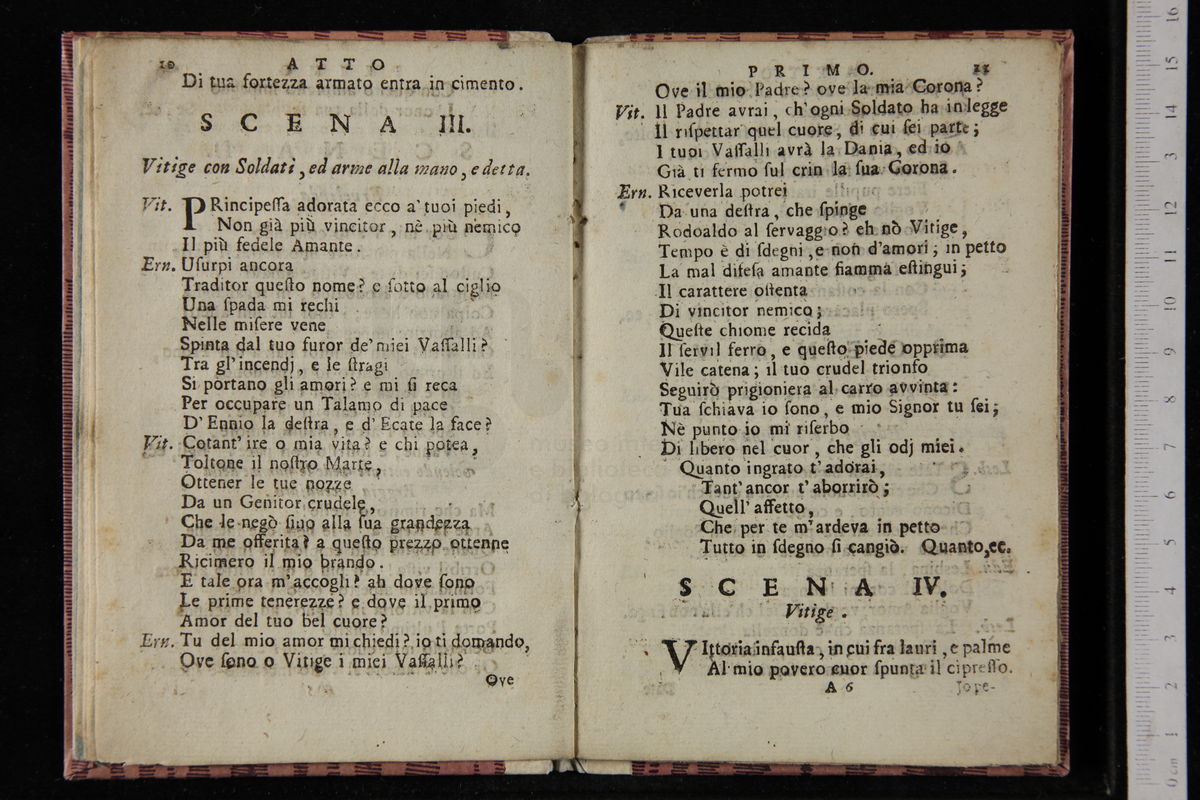 10 ATTO
Di tua fortezza armato entra in cimento.
SCENA III.
Vitige con Soldati, ed arme alla mano, e detta.
Vit. PRincipeſſa adorata ecco a' tuoi piedi,
Non già più vincitor, nè più nemico
Il più fedele Amante.
Ern. Uſurpi ancora
Traditor queſto nome? e ſotto al ciglio
Una ſpada mi rechi
Nelle miſere vene
Spinta dal tuo furor de' miei Vaſſalli?
Tra gl' incendj, e le ſtragi
Si portano gli amori? e mi ſi reca
Per occupare un Talamo di pace
D' Ennio la deſtra, e d' Ecate la face?
Vit. Cotant' ire o mia vita? e chi potea,
Toltone il noſtro Marte,
Ottener le tue nozze
Da un Genitor crudele,
Che le negò ſino alla ſua grandezza
Da me offerita? a queſto prezzo ottenne
Ricimero il mio brando.
E tale ora m' accogli? ah dove ſono
Le prime tenerezze? e dove il primo
Amor del tuo bel cuore?
Ern. Tu del mio amor mi chiedi? io ti domando,
Ove ſono o Vitige i miei Vaſſalli?
Ove
PRIMO. 11
Ove il mio Padre? ove la mia Corona?
Vit. Il Padre avrai, ch' ogni Soldato ha in legge
Il riſpettar quel cuore, di cui ſei parte;
I tuoi Vaſſalli avrà la Dania, ed io
Già ti fermo ſul crin la ſua Corona.
Ern. Riceverla potrei
Da una deſtra, che ſpinge
Rodoaldo al ſervaggio? eh nò Vitige,
Tempo è di ſdegni, e non d'amori; in petto
La mal difeſa amante fiamma eſtingui;
Il carattere oſtenta
Di vincitor nemico;
Queſte chiome recida
Il ſervil ferro, e queſto piede opprima
Vile catena; il tuo crudel trionfo
Seguirò prigioniera al carro avvinta:
Tua ſchiava io ſono, e mio Signor tu ſei;
Nè punto io mi riſerbo
Di libero nel cuor, che gli odj miei.
Quanto ingrato t' adorai,
Tant' ancor t' aborrirò;
Quell' affetto,
Che per te m' ardeva in petto
Tutto in ſdegno ſi cangiò. Quanto, ec.
SCENA IV.
Vitige.
VIttoria infauſta, in cui fra lauri, e palme
Al mio povero cuor ſpunta il cipreſſo.
A 6 Jope-